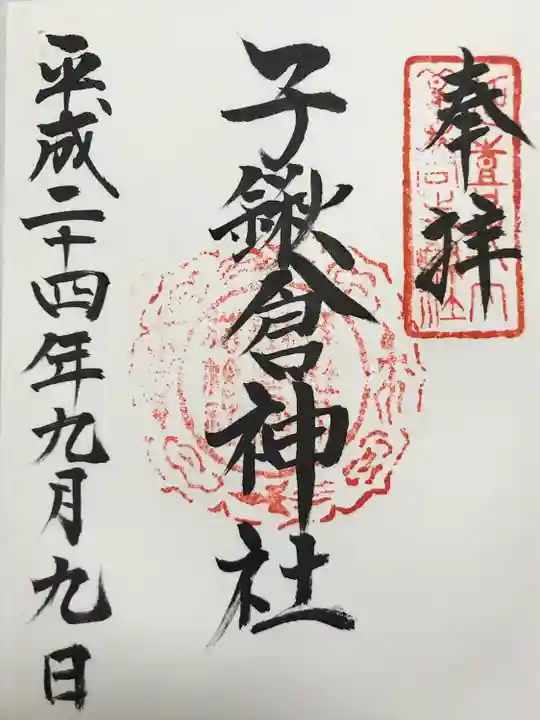 奉拝
子鍬倉神社
平成二十四年九月九日